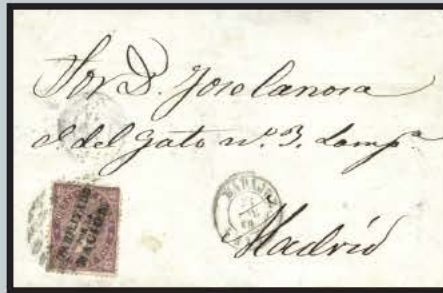 Sor D. Jose Canosa
C. del Gato nº. 3. Lampª
Madrid
HABILITADO
POR LA
NACION